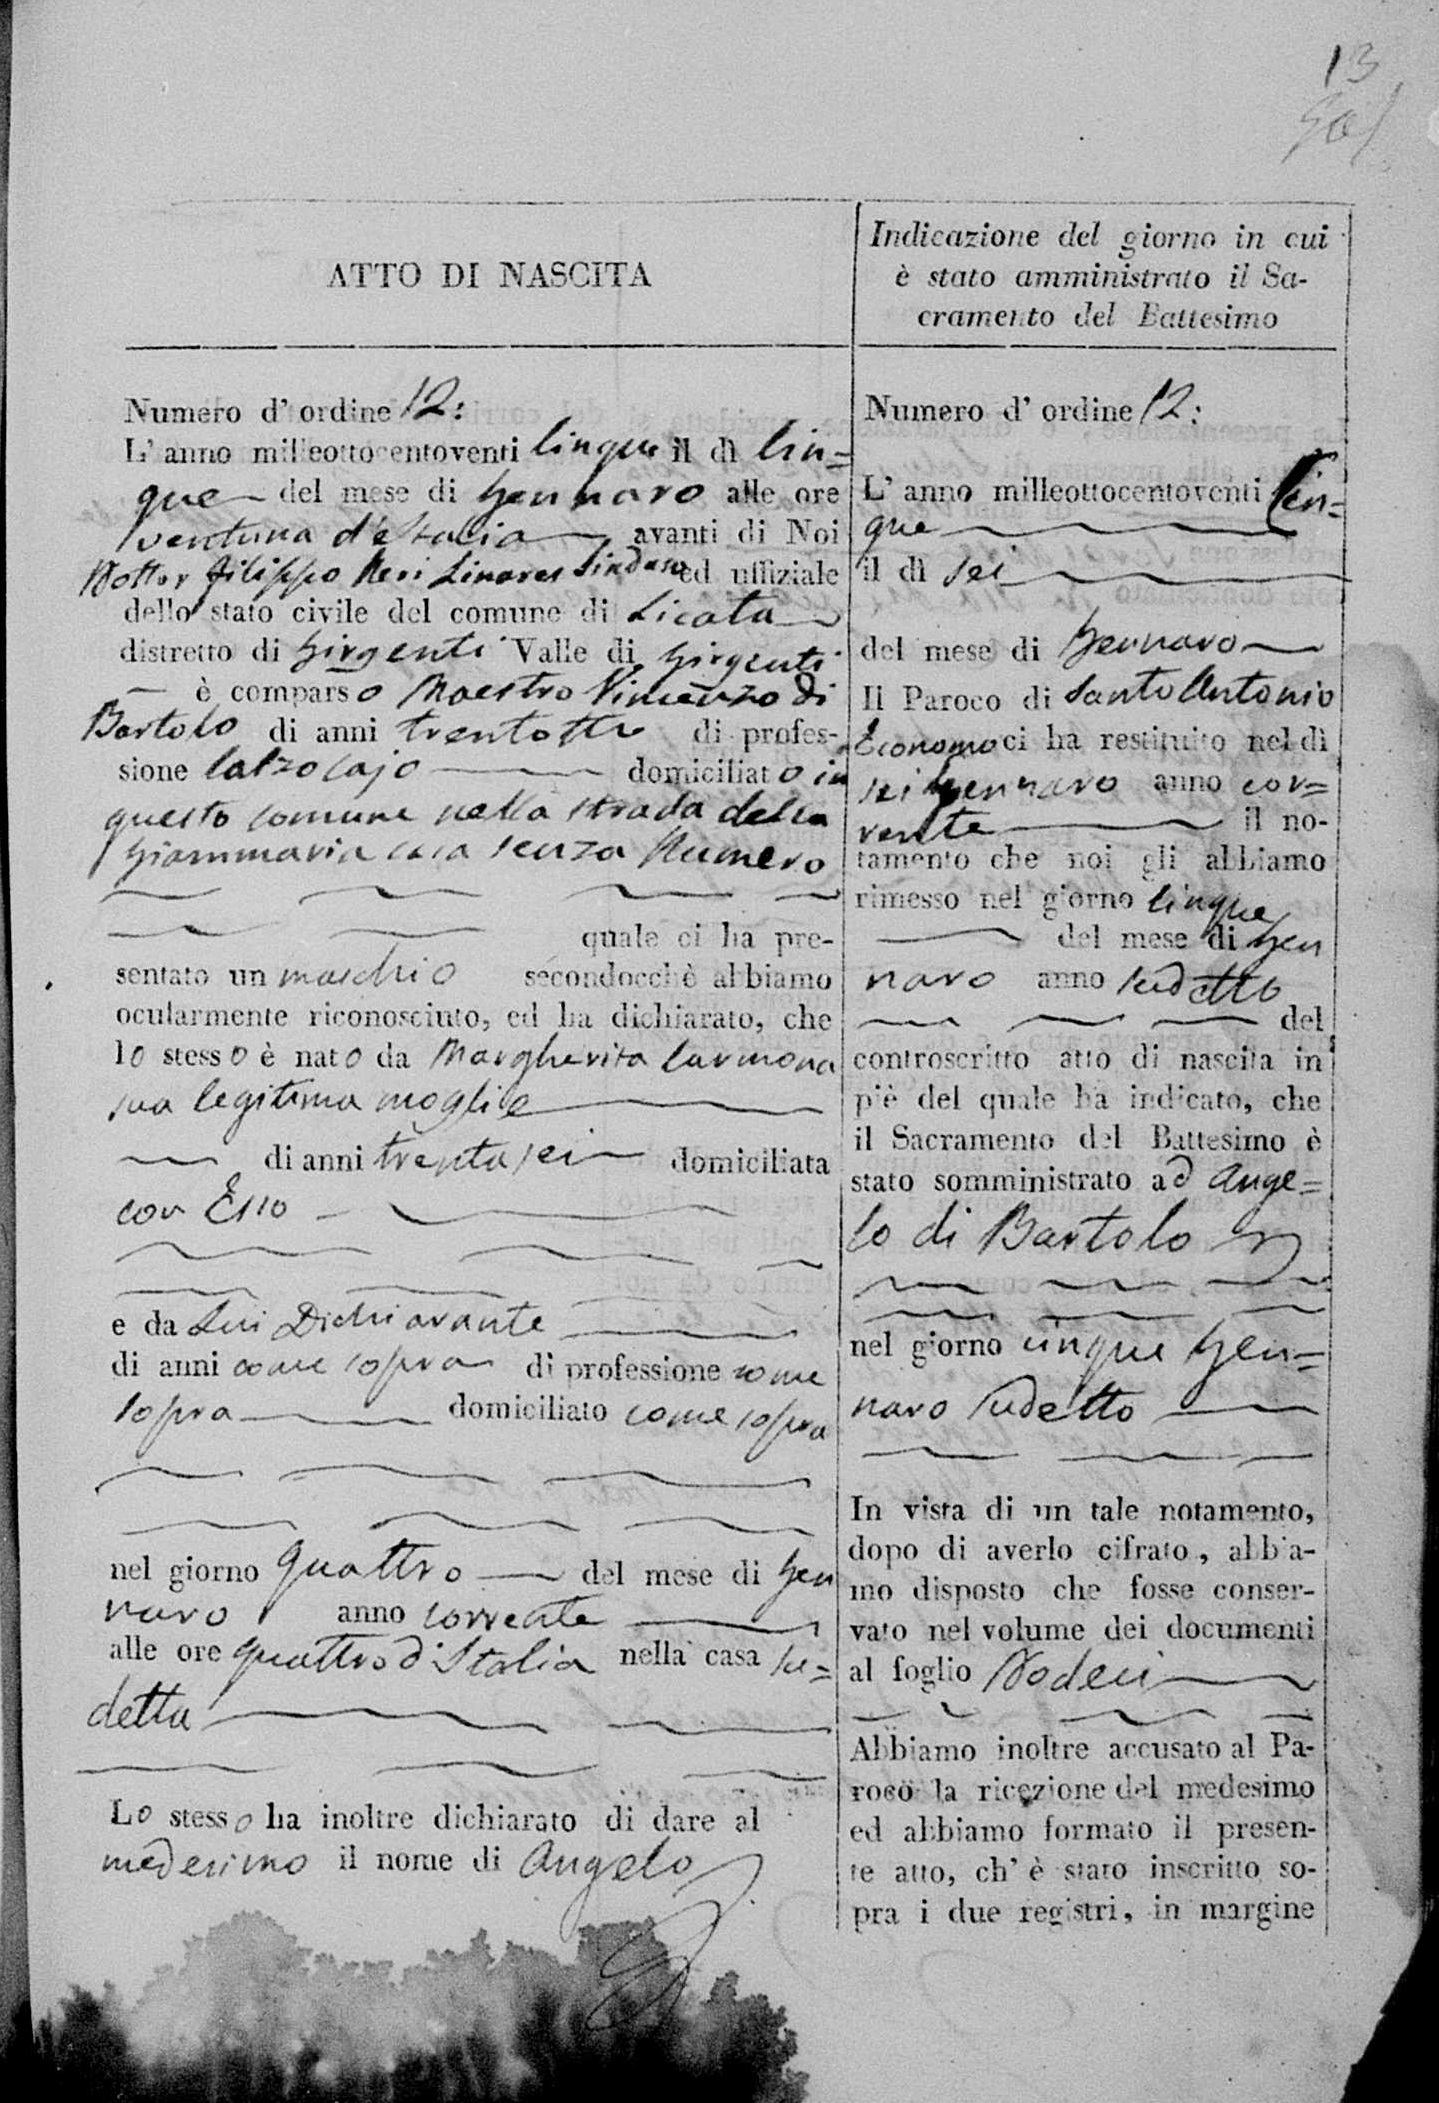 13
ATTO DI NASCITA
Numero d' ordine 12:
L' anno milleottocentoventi Cinque il dì Cin=
que del mese di Gennaro alle ore
ventuna d'Italia avanti di Noi
Dottor Filippo Neri Linares Sindaco ed uffiziale
dello stato civile del comune di Licata
distretto di Girgenti Valle di Girgenti
è comparso Maestro Vincenzo di
Bartolo di anni trentotto di profes-
sione Calzolajo domiciliato in
questo comune nella strada della
Giammaria casa senza Numero
quale ci ha pre-
sentato un maschio secondocchè abbiamo
ocularmente riconosciuto, ed ha dichiarato, che
lo stesso è nato da Margherita Carmona
sua legitima moglie
di anni trenta sei domiciliata
con Esso
e da Lui Dichiarante
di anni come sopra di professione come
sopra domiciliato come sopra
nel giorno quattro del mese di Gen
naro anno corrente
alle ore quattro d'Italia nella casa su=
detta
Lo stesso ha inoltre dichiarato di dare al
medesimo il nome di Angelo
Indicazione del giorno in cui
è stato amministrato il Sa-
cramento del Battesimo
Numero d' ordine 12:
L' anno milleottocentoventi Cin=
que
il dì sei
del mese di Gennaro
Il Paroco di Santo Antonio
Economo ci ha restituito nel dì
sei Gennaro anno cor=
rente il no-
tamento che noi gli abbiamo
rimesso nel giorno Cinque
del mese di Gen
naro anno sudetto
del
controscritto atto di nascita in
piè del quale ha indicato, che
il Sacramento del Battesimo è
stato somministrato ad Ange=
lo di Bartolo
nel giorno cinque Gen=
naro sudetto
In vista di un tale notamento,
dopo di averlo cifrato, abbia-
mo disposto che fosse conser-
vato nel volume dei documenti
al foglio Dodeci
Abbiamo inoltre accusato al Pa-
roco la ricezione del medesimo
ed abbiamo formato il presen-
te atto, ch' è stato inscritto so-
pra i due registri, in margine